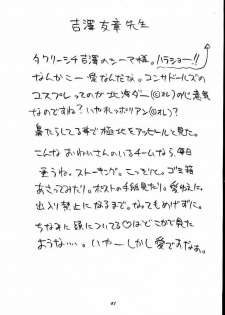 吉澤友章先生
タクリーシチ吉澤のシーマ様。ハラショー!!
なんかこー愛なんだな。コンサドールズの
コスプレってのが北海ダー(◎オレ)の心意気
なのですね?いやれっポリアン(◎オレ)?
鼻たらしてる事で極北をアッピールと見た。
こんなおねいさんのいるチームなら、毎日
通うね。ストーキング。こっそりと。ゴミ箱
あさってみたり。ポストの手紙見たり。愛故に。
出入り禁止になるまで。なってもめげずに。
ちなみに頭についてる♡はどこかで見た
ような…。いやーしかし愛ですなぁ。